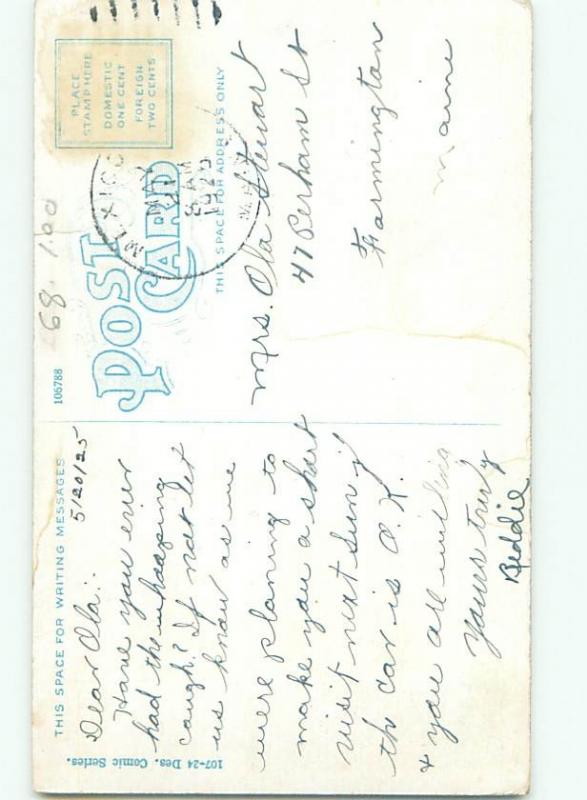 THIS SPACE FOR WRITING MESSAGES
5/20/25
Dear Ola:-
Have you ever
had the whooping
cough? If not let
us know as we
were planing to
make you a short
visit next Sun. if
the car is O.K.
& you are willing
Yours truly
Beddie
107-24 Des. Comic Series.
106788
POST CARD
68. 1.00
PLACE
STAMP HERE
DOMESTIC
ONE CENT
FOREIGN
TWO CENTS
MEXICO
MAY
21
8 AM
1925
THIS SPACE FOR ADDRESS ONLY
Mrs. Ola Stewart
47 Perham St
Farmington
Maine